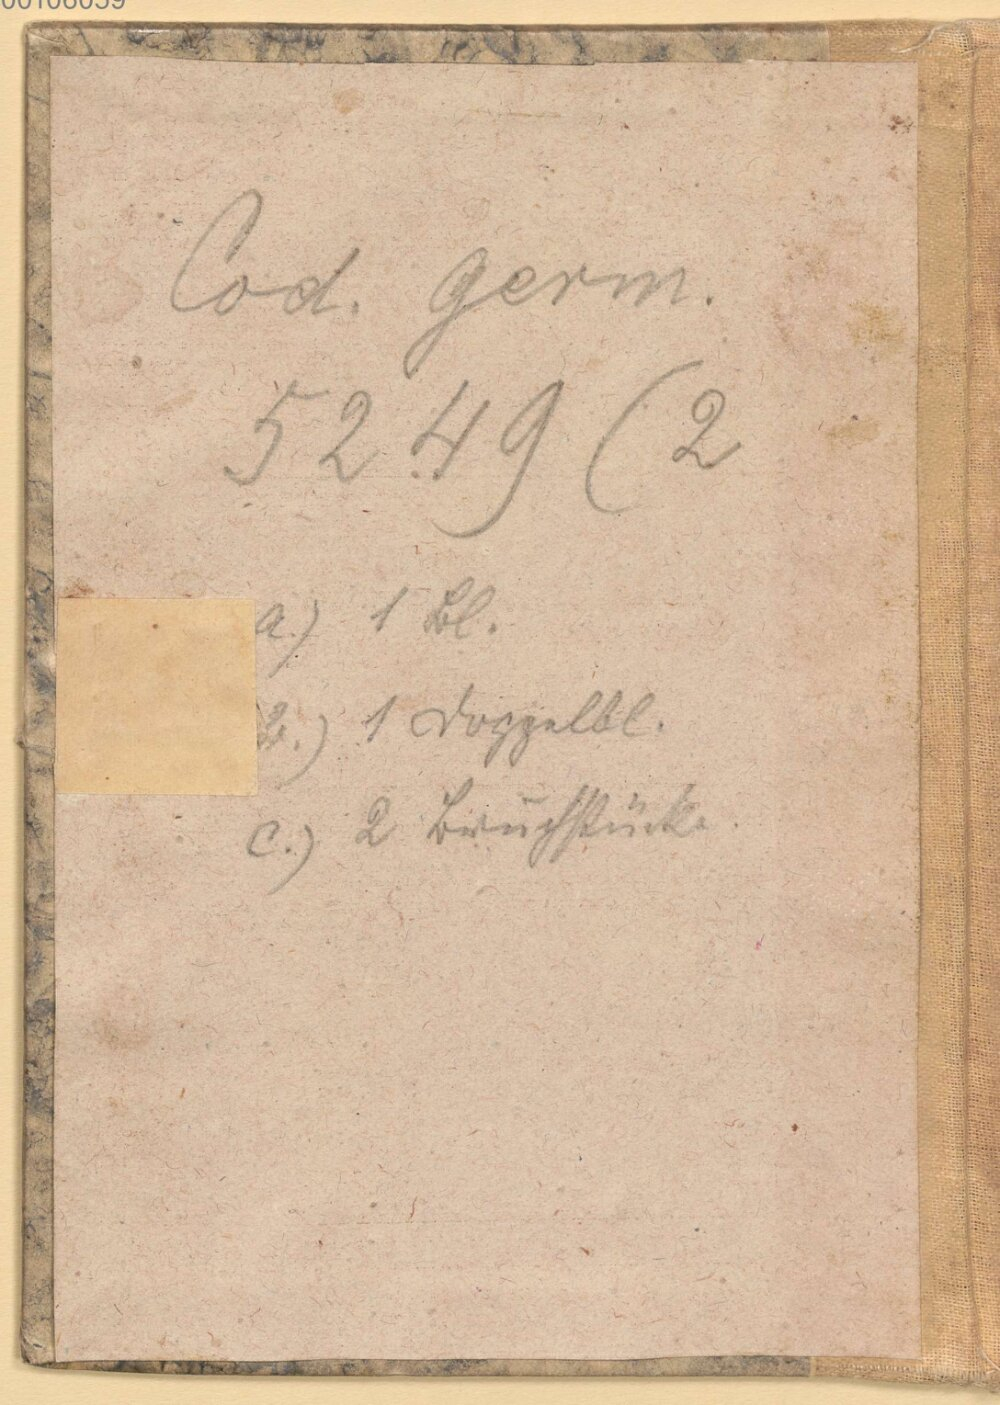 00106059
Cod. germ.
5249 (2
a.) 1 Bl.
b.) 1 Doppelbl.
c.) 2 Bruchstücke.